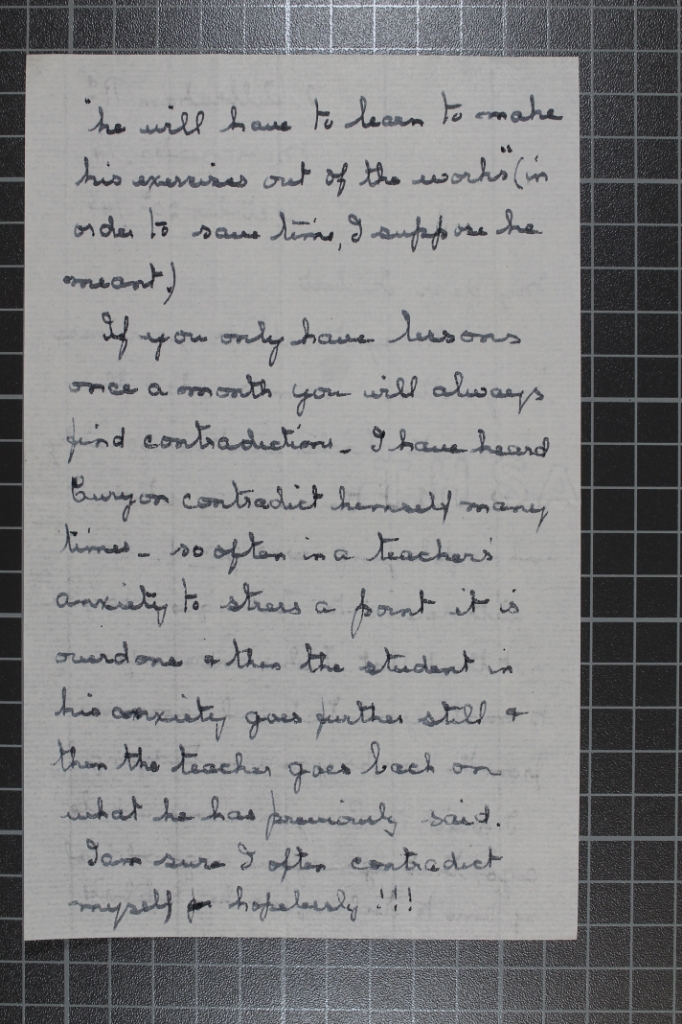 "he will have to learn to make
his exercises out of the works" (in
order to save time, I suppose he
meant.)
If you only have lessons
once a month you will always
find contradictions - I have heard
Curzon contradict himself many
times - so often in a teacher's
anxiety to stress a point it is
overdone & then the student in
his anxiety goes further still &
then the teacher goes back on
what he has previously said.
I am sure I often contradict
myself hopelessly !!!